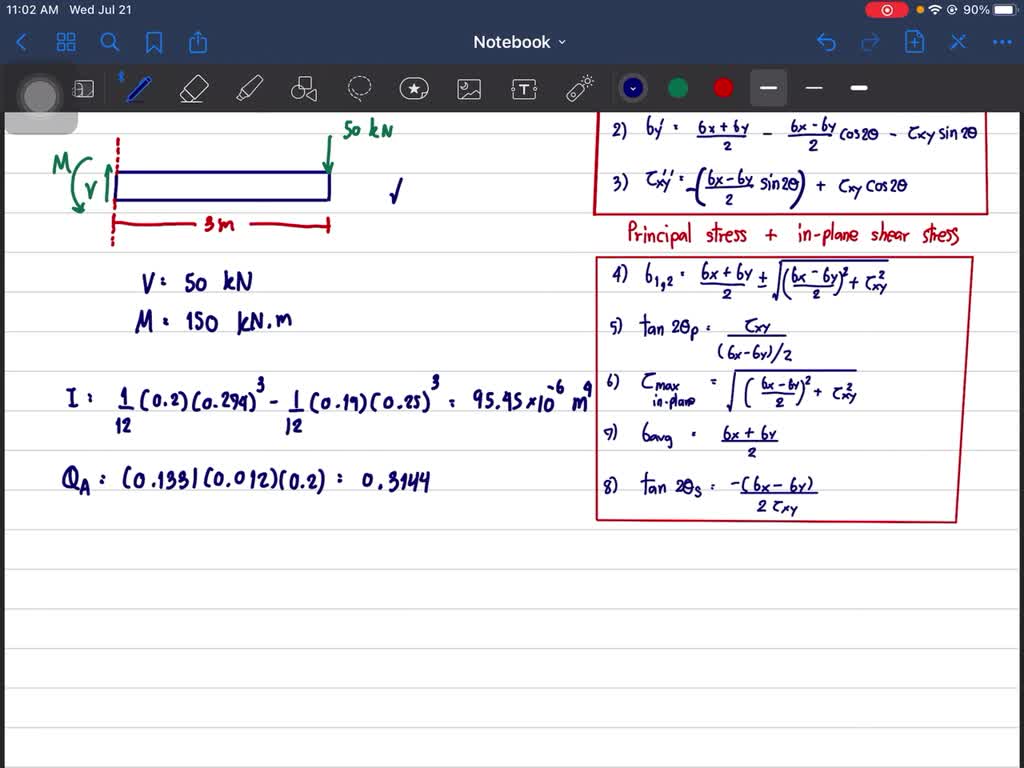 11:02 AM Wed Jul 21
90%
Notebook
50 kN
M
V
3m
V: 50 kN
M: 150 kN.m
I: 1/12 (0.2)(0.274)^3 - 1/12 (0.19)(0.25)^3 = 95.45*10^-6 m^4
Q_A: (0.133)(0.012)(0.2) = 0.3144
2) σy' = (σx+σy)/2 - (σx-σy)/2 cos2θ - τxy sin2θ
3) τx'y' = -((σx-σy)/2 sin2θ) + τxy cos2θ
Principal stress + in-plane shear stress
4) σ1,2 = (σx+σy)/2 ± √(((σx-σy)/2)^2 + τxy^2)
5) tan 2θp = τxy/((σx-σy)/2)
6) τmax in-plane = √(((σx-σy)/2)^2 + τxy^2)
7) σavg = (σx+σy)/2
8) tan 2θs = -(σx-σy)/(2τxy)